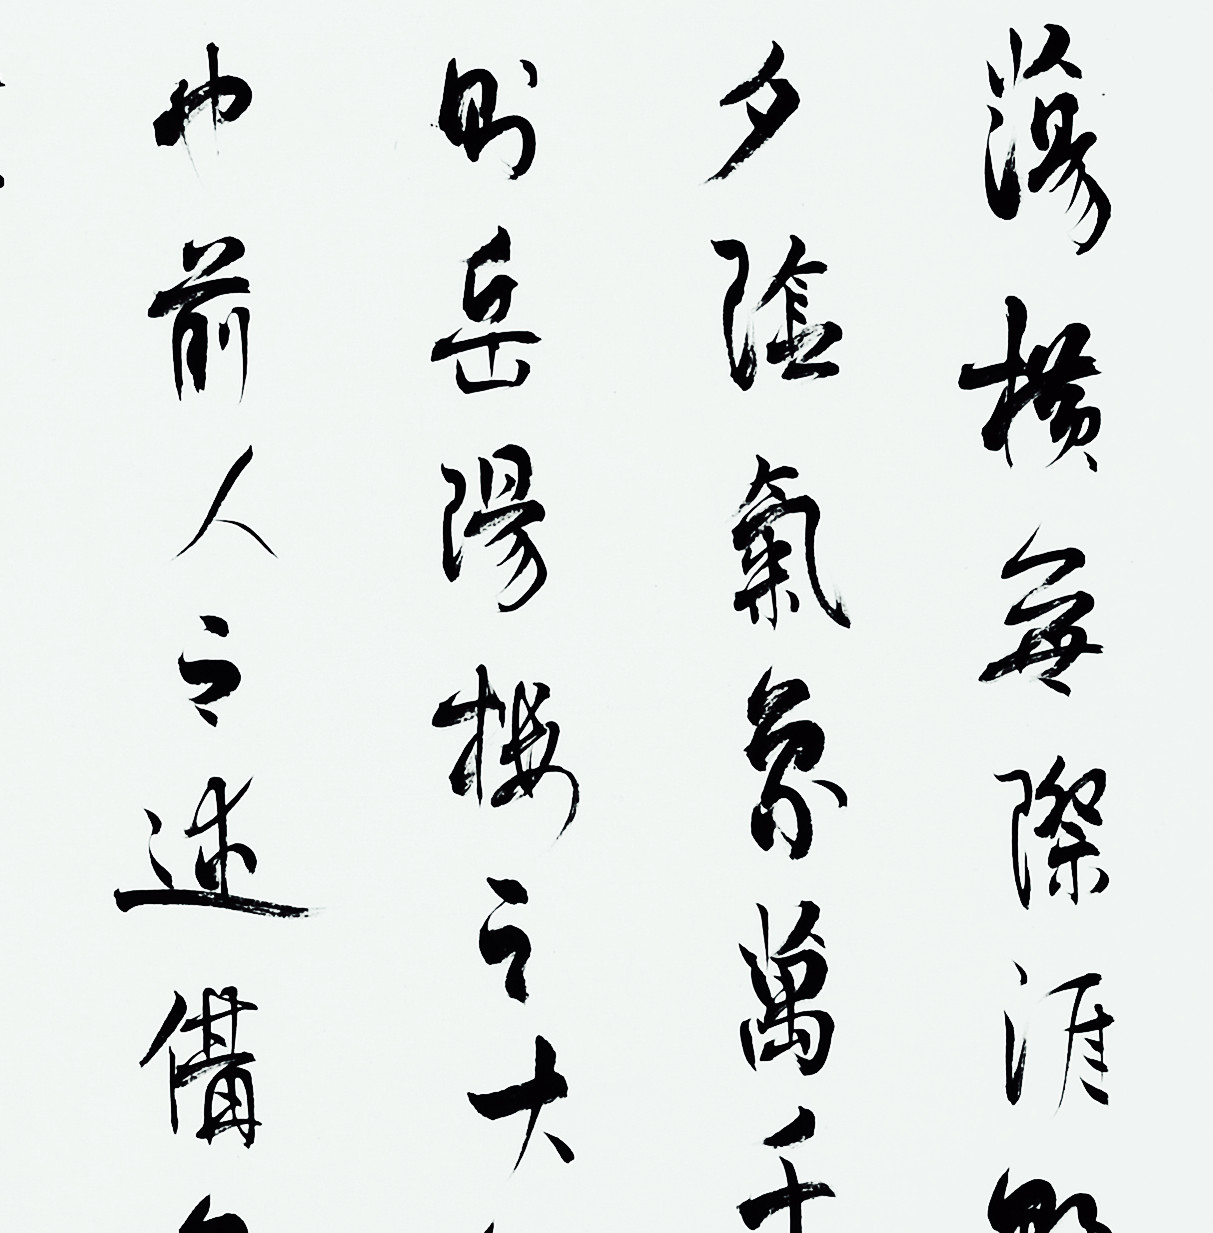 蕩橫無際涯
夕陰氣象萬千
則岳陽樓之大
也前人之述備